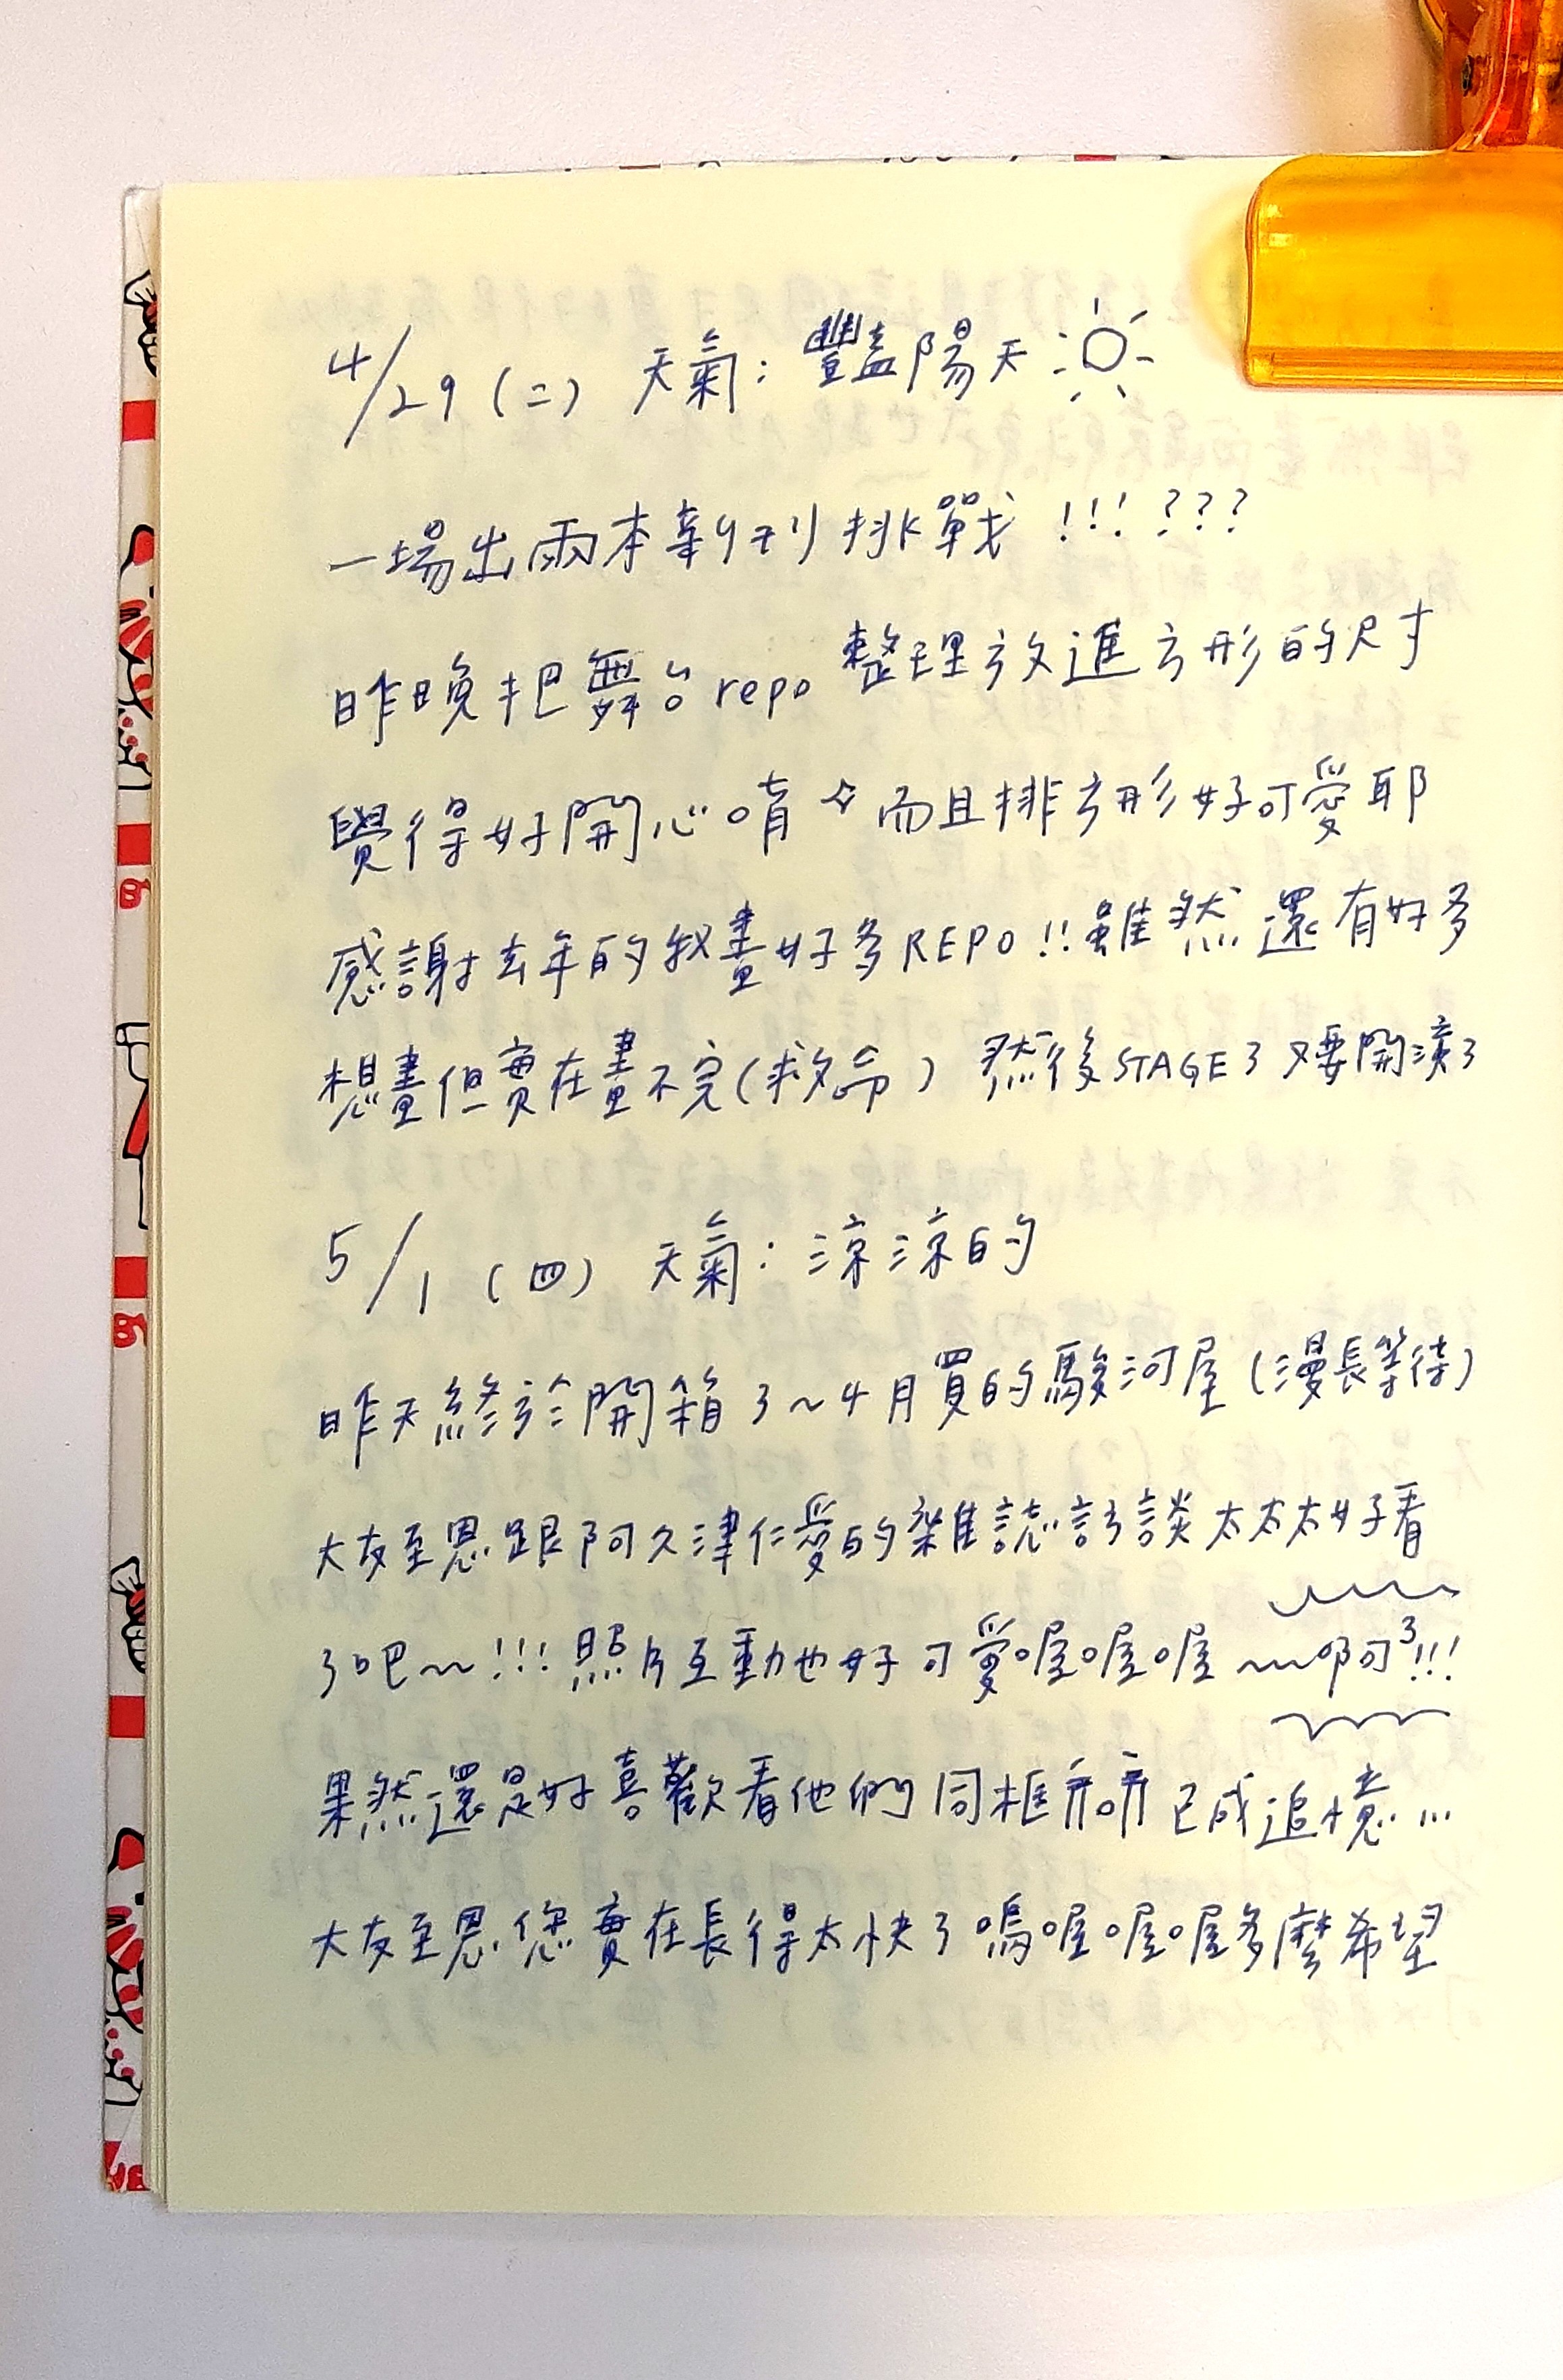 4/29 (二) 天氣：豔陽天
一場出兩本新刊挑戰 !!! ???
昨晚把舞台repo整理放進方形的尺寸
覺得好開心唷✧而且排方形好可愛耶
感謝去年的我畫好多REPO!!雖然還有好多
想畫但實在畫不完(救命) 然後STAGE3又要開演了
5/1 (四) 天氣：涼涼的
昨天終於開箱3~4月買的駿河屋(漫長等待)
大友至恩跟阿久津仁愛的雜誌訪談太太太好看
了吧~~!!!照片互動也好可愛喔喔喔~~啊3!!!
果然還是好喜歡看他們同框 已成追憶...
大友至恩您實在長得太快了嗚喔喔喔多麼希望